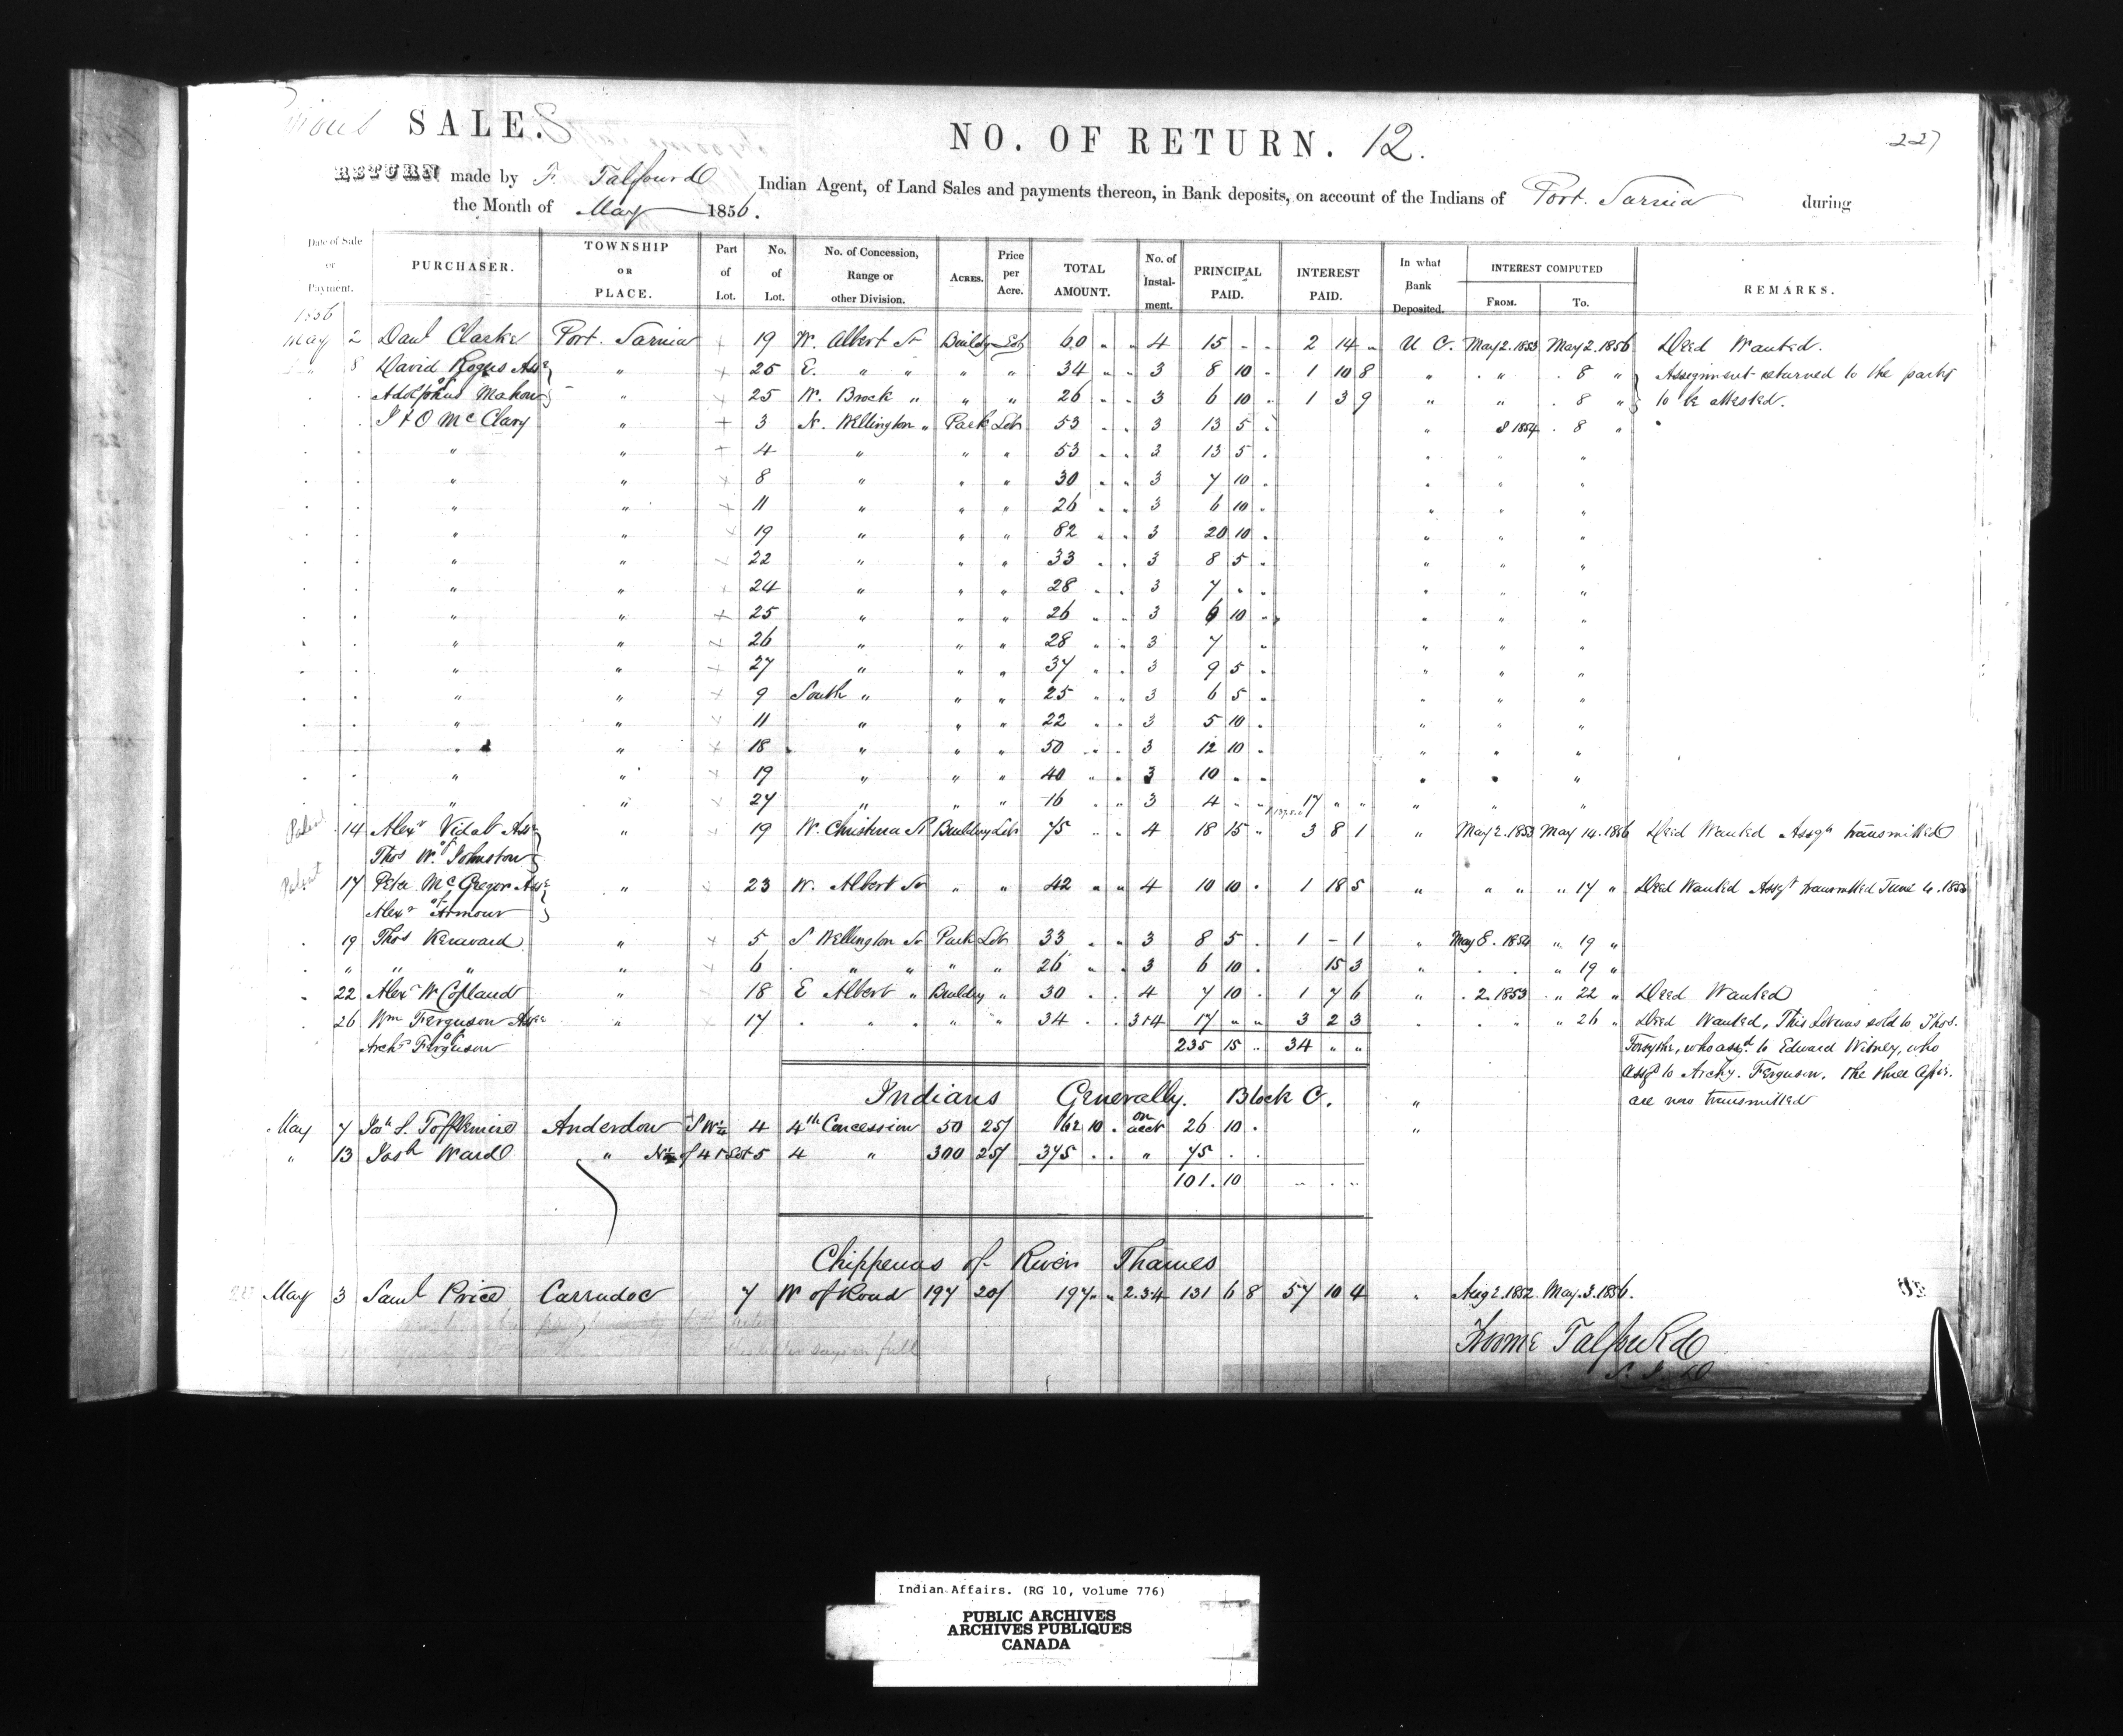 SALES
NO. OF RETURN. 12.
227
RETURN made by F. Talfourd Indian Agent, of Land Sales and payments thereon, in Bank deposits, on account of the Indians of Port Sarnia during
the Month of May 1856.
Date of Sale or Payment. PURCHASER. TOWNSHIP OR PLACE. Part of Lot. No. of Lot. No. of Concession, Range or other Division. ACRES. Price per Acre. TOTAL AMOUNT. No. of Instal-ment. PRINCIPAL PAID. INTEREST PAID. In what Bank Deposited. INTEREST COMPUTED FROM. TO. REMARKS.
1856
May 2 Danl Clarke Port Sarnia + 19 W. Albert St Buildg Lot 60 " " 4 15 - - 2 14 " U C. May 2. 1853 May 2. 1856 Deed Wanted.
" 8 David Rogus Asse " + 25 E. " " " " 34 " " 3 8 10 " 1 10 8 " " 8 " Assignment returned to the party
of
Adolphus Mahon " + 25 W. Brock " " " 26 " " 3 6 10 " 1 3 9 " " 8 " to be attested.
J & O McClary " + 3 N. Wellington " Park Lots 53 " " 3 13 5 " " 8 1854 8 "
" " + 4 " " " 53 " " 3 13 5 " " " "
" " + 8 " " " 30 " " 3 7 10 " " " "
" " + 11 " " " 26 " " 3 6 10 " " " "
" " + 19 " " " 82 " " 3 20 10 " " " "
" " + 22 " " " 33 " " 3 8 5 " " " "
" " + 24 " " " 28 " " 3 7 " " " " "
" " + 25 " " " 26 " " 3 6 10 " " " "
" " + 26 " " " 28 " " 3 7 " " " "
" " + 27 " " " 37 " " 3 9 5 " " " "
" " + 9 South " " " 25 " " 3 6 5 " " " "
" " + 11 " " " 22 " " 3 5 10 " " " "
" " + 18 " " " 50 " " 3 12 10 " " " "
" " + 19 " " " 40 " " 3 10 " " " " "
" " + 27 " " " 16 " " 3 4 " " 17 " " " " "
14 Alexr Vidal Asse " + 19 W. Christina St Building Lots 75 " " 4 18 15 " 3 8 1 " May 2. 1853 May 14. 1856 Deed Wanted Assgt transmitted
of
Thos W. Johnston
Patent 17 Peter McGregor Asse " + 23 W. Albert St " " 42 " " 4 10 10 " 1 18 5 " " " " 17 " Deed Wanted Assgt transmitted June 4. 1855
of
Alexr Armour
19 Thos Kenward " + 5 S Wellington St Park Lots 33 " " 3 8 5 " 1 - 1 " May 8. 1854 " 19 "
" " " " + 6 " " " " 26 " " 3 6 10 " 15 3 " " 19 "
22 Alexr W Copland " + 18 E Albert " Building " 30 . . 4 7 10 . 1 7 6 " . 2. 1853 " 22 " Deed Wanted
26 Wm Ferguson Asse " + 17 . " . " " 34 . . 3&4 17 " " 3 2 3 . " " 26 " Deed Wanted, This Lot was sold to Thos.
of
Archd Ferguson 235 15 .. 34 " " Forsythe, who assgd to Edward Witney, who
assgd to Archy. Ferguson. The three Assts.
are now transmitted
Indians Generally. Block C. "
May 7 Josh S. Tofflemire Anderdon S W¼ 4 4th Concession 50 25/ 62 10 . on acct 26 10 . "
" 13 Josh Ward " N½ of 4 & Lot 5 4 " 300 25/ 375 . . " 75 . .
101. 10 " . "
Chippewas of River Thames
May 3 Saml Price Carradoc 7 W of Road 197 20/ 197 " " 2.3.4 131 6 8 57 10 4 " Aug 2. 1852. May. 3. 1856.
Froome Talfourd
S. I. D
Indian Affairs. (RG 10, Volume 776)
PUBLIC ARCHIVES
ARCHIVES PUBLIQUES
CANADA